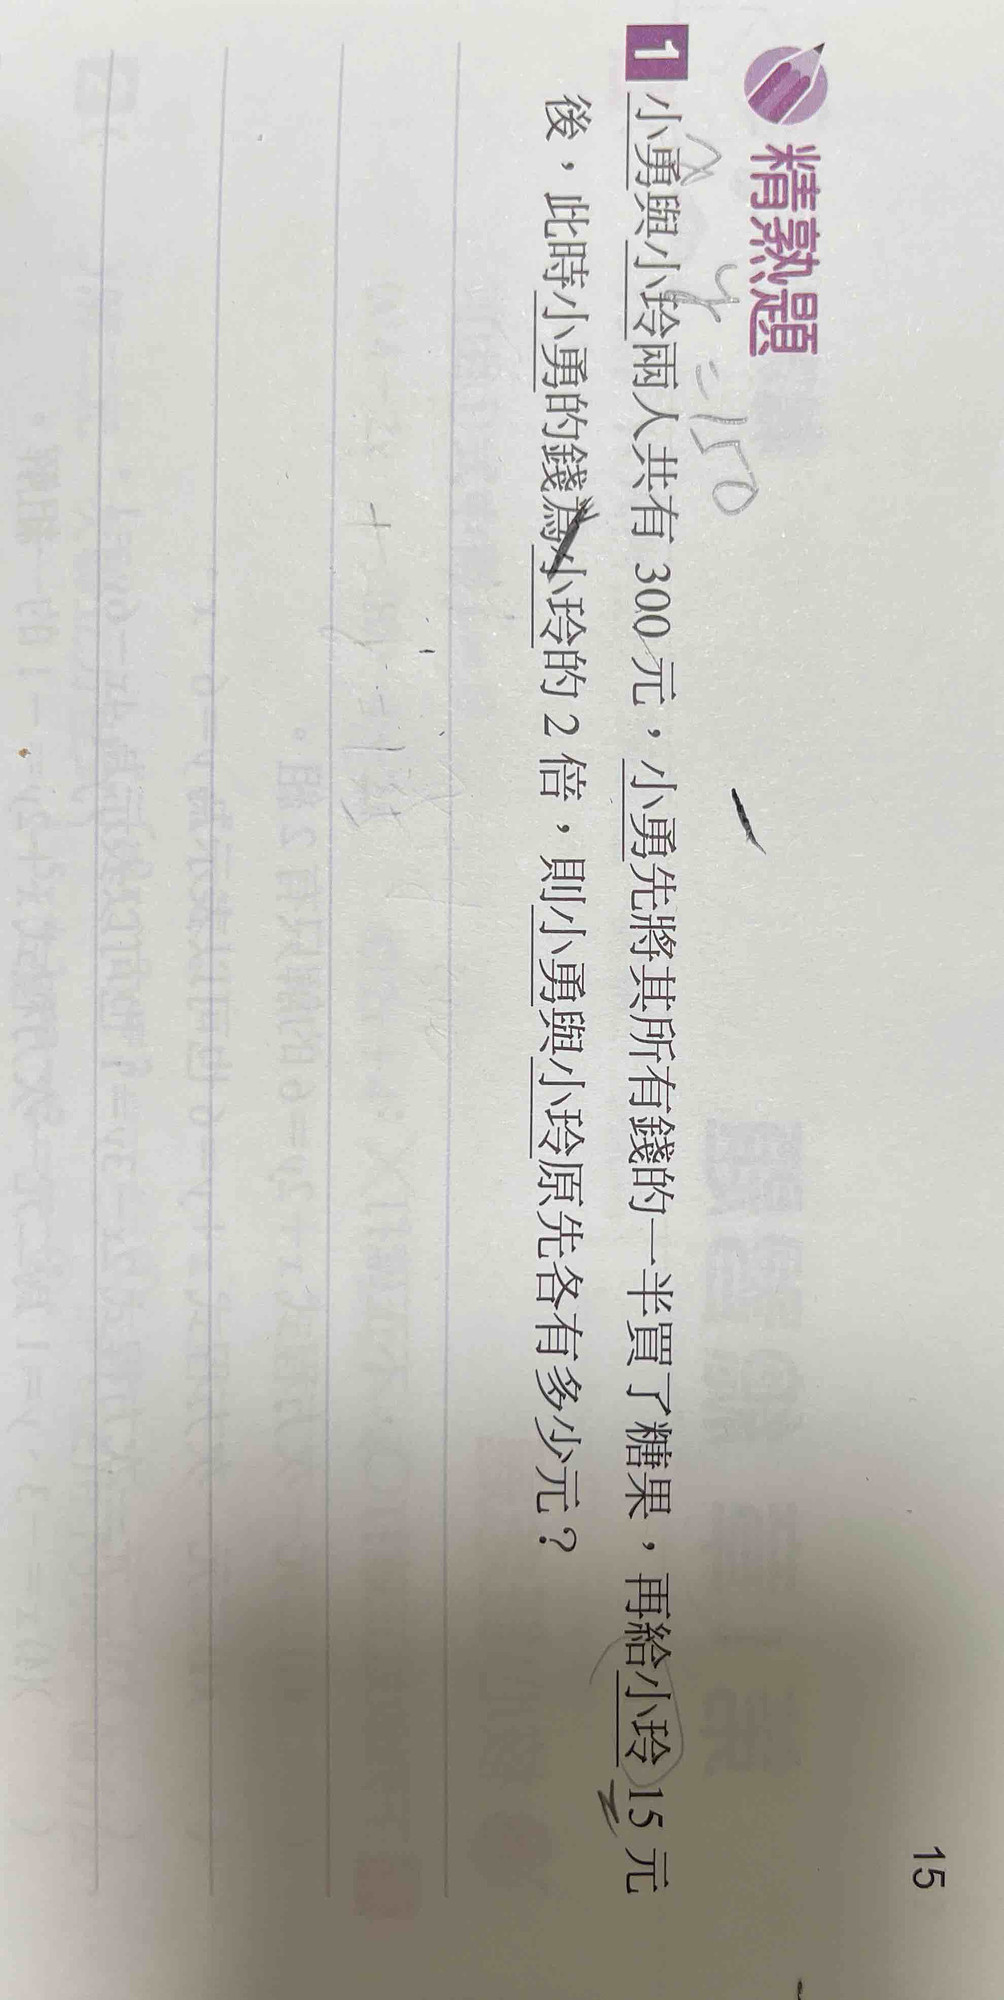 15
精熟題
x y =150
1 小勇與小玲兩人共有 300 元，小勇先將其所有錢的一半買了糖果，再給小玲 15 元
後，此時小勇的錢為小玲的 2 倍，則小勇與小玲原先各有多少元？